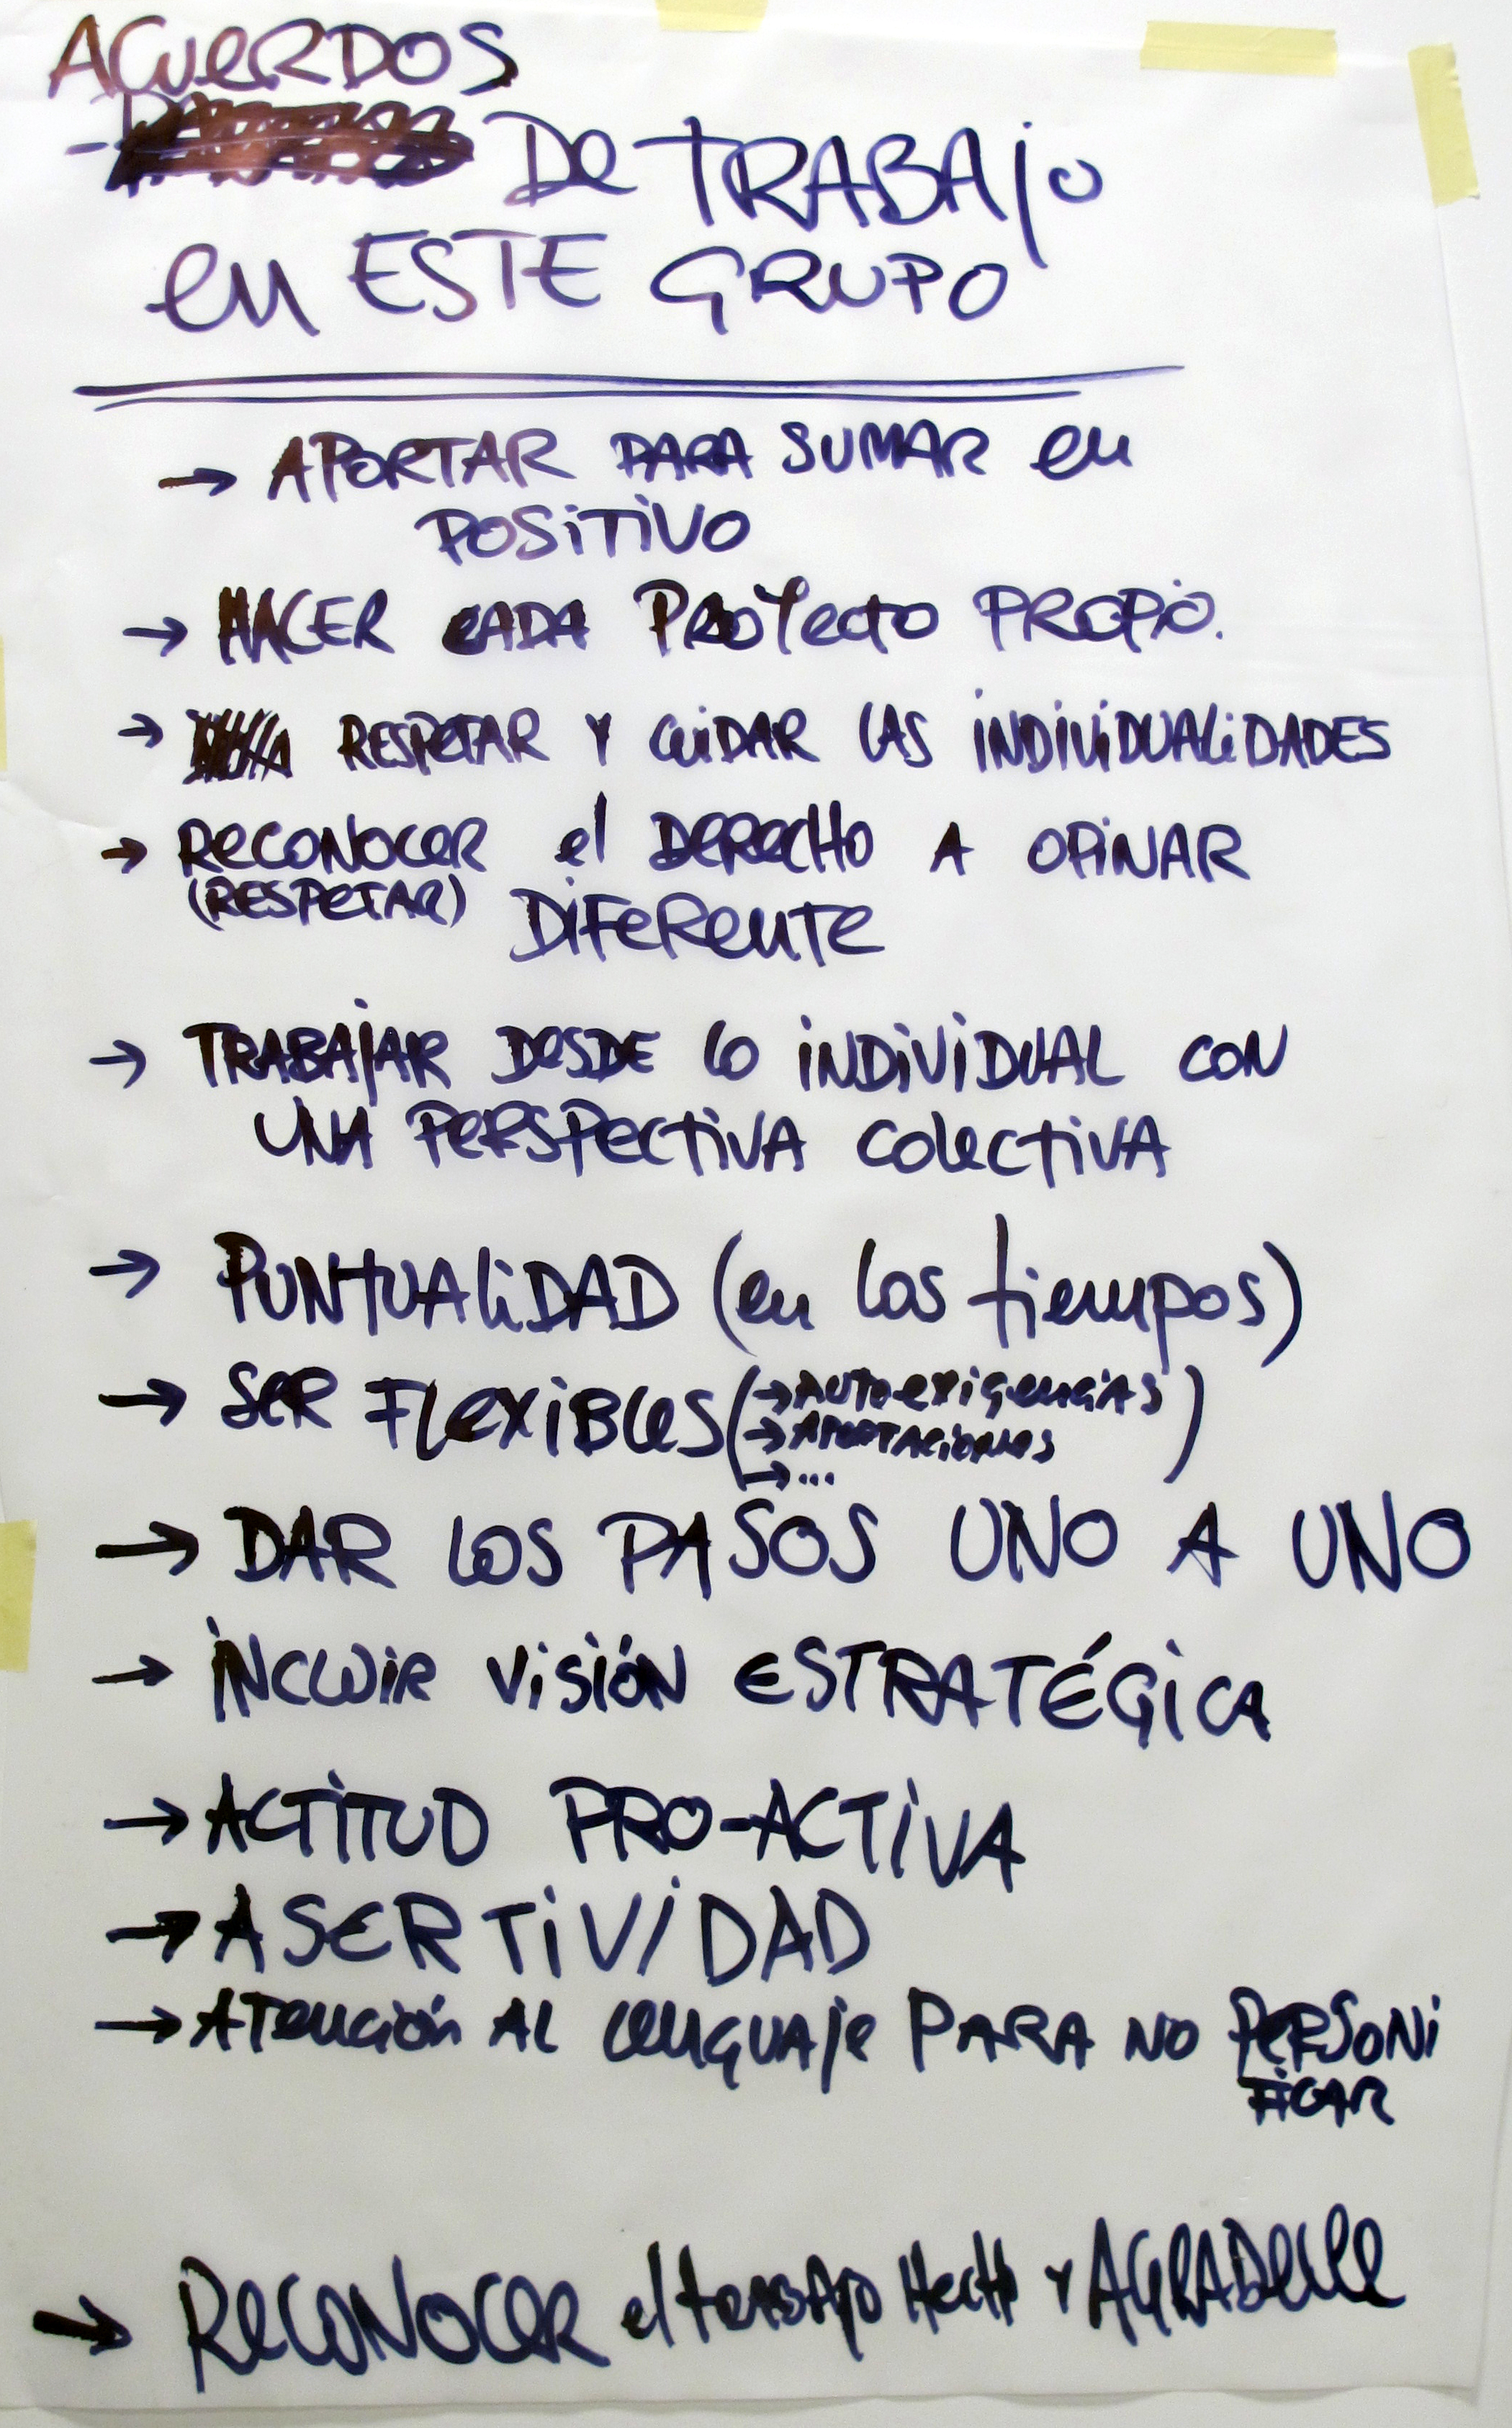 ACUERDOS
- DE TRABAJO
EN ESTE GRUPO
→ APORTAR PARA SUMAR EN
POSITIVO
→ HACER CADA PROYECTO PROPIO.
→ RESPETAR Y CUIDAR LAS INDIVIDUALIDADES
→ RECONOCER el DERECHO A OPINAR
(RESPETAR) DIFERENTE
→ TRABAJAR DESDE LO INDIVIDUAL CON
UNA PERSPECTIVA COLECTIVA
→ PUNTUALIDAD (en los tiempos)
→ SER FLEXIBLES (→ AUTOEXIGENCIAS)
→ APORTACIONES
→ ...
→ DAR LOS PASOS UNO A UNO
→ INCLUIR VISIÓN ESTRATÉGICA
→ ACTITUD PRO-ACTIVA
→ ASERTIVIDAD
→ ATENCIÓN AL LENGUAJE PARA NO PERSONI
FICAR
→ RECONOCER el TRABAJO HECHO Y